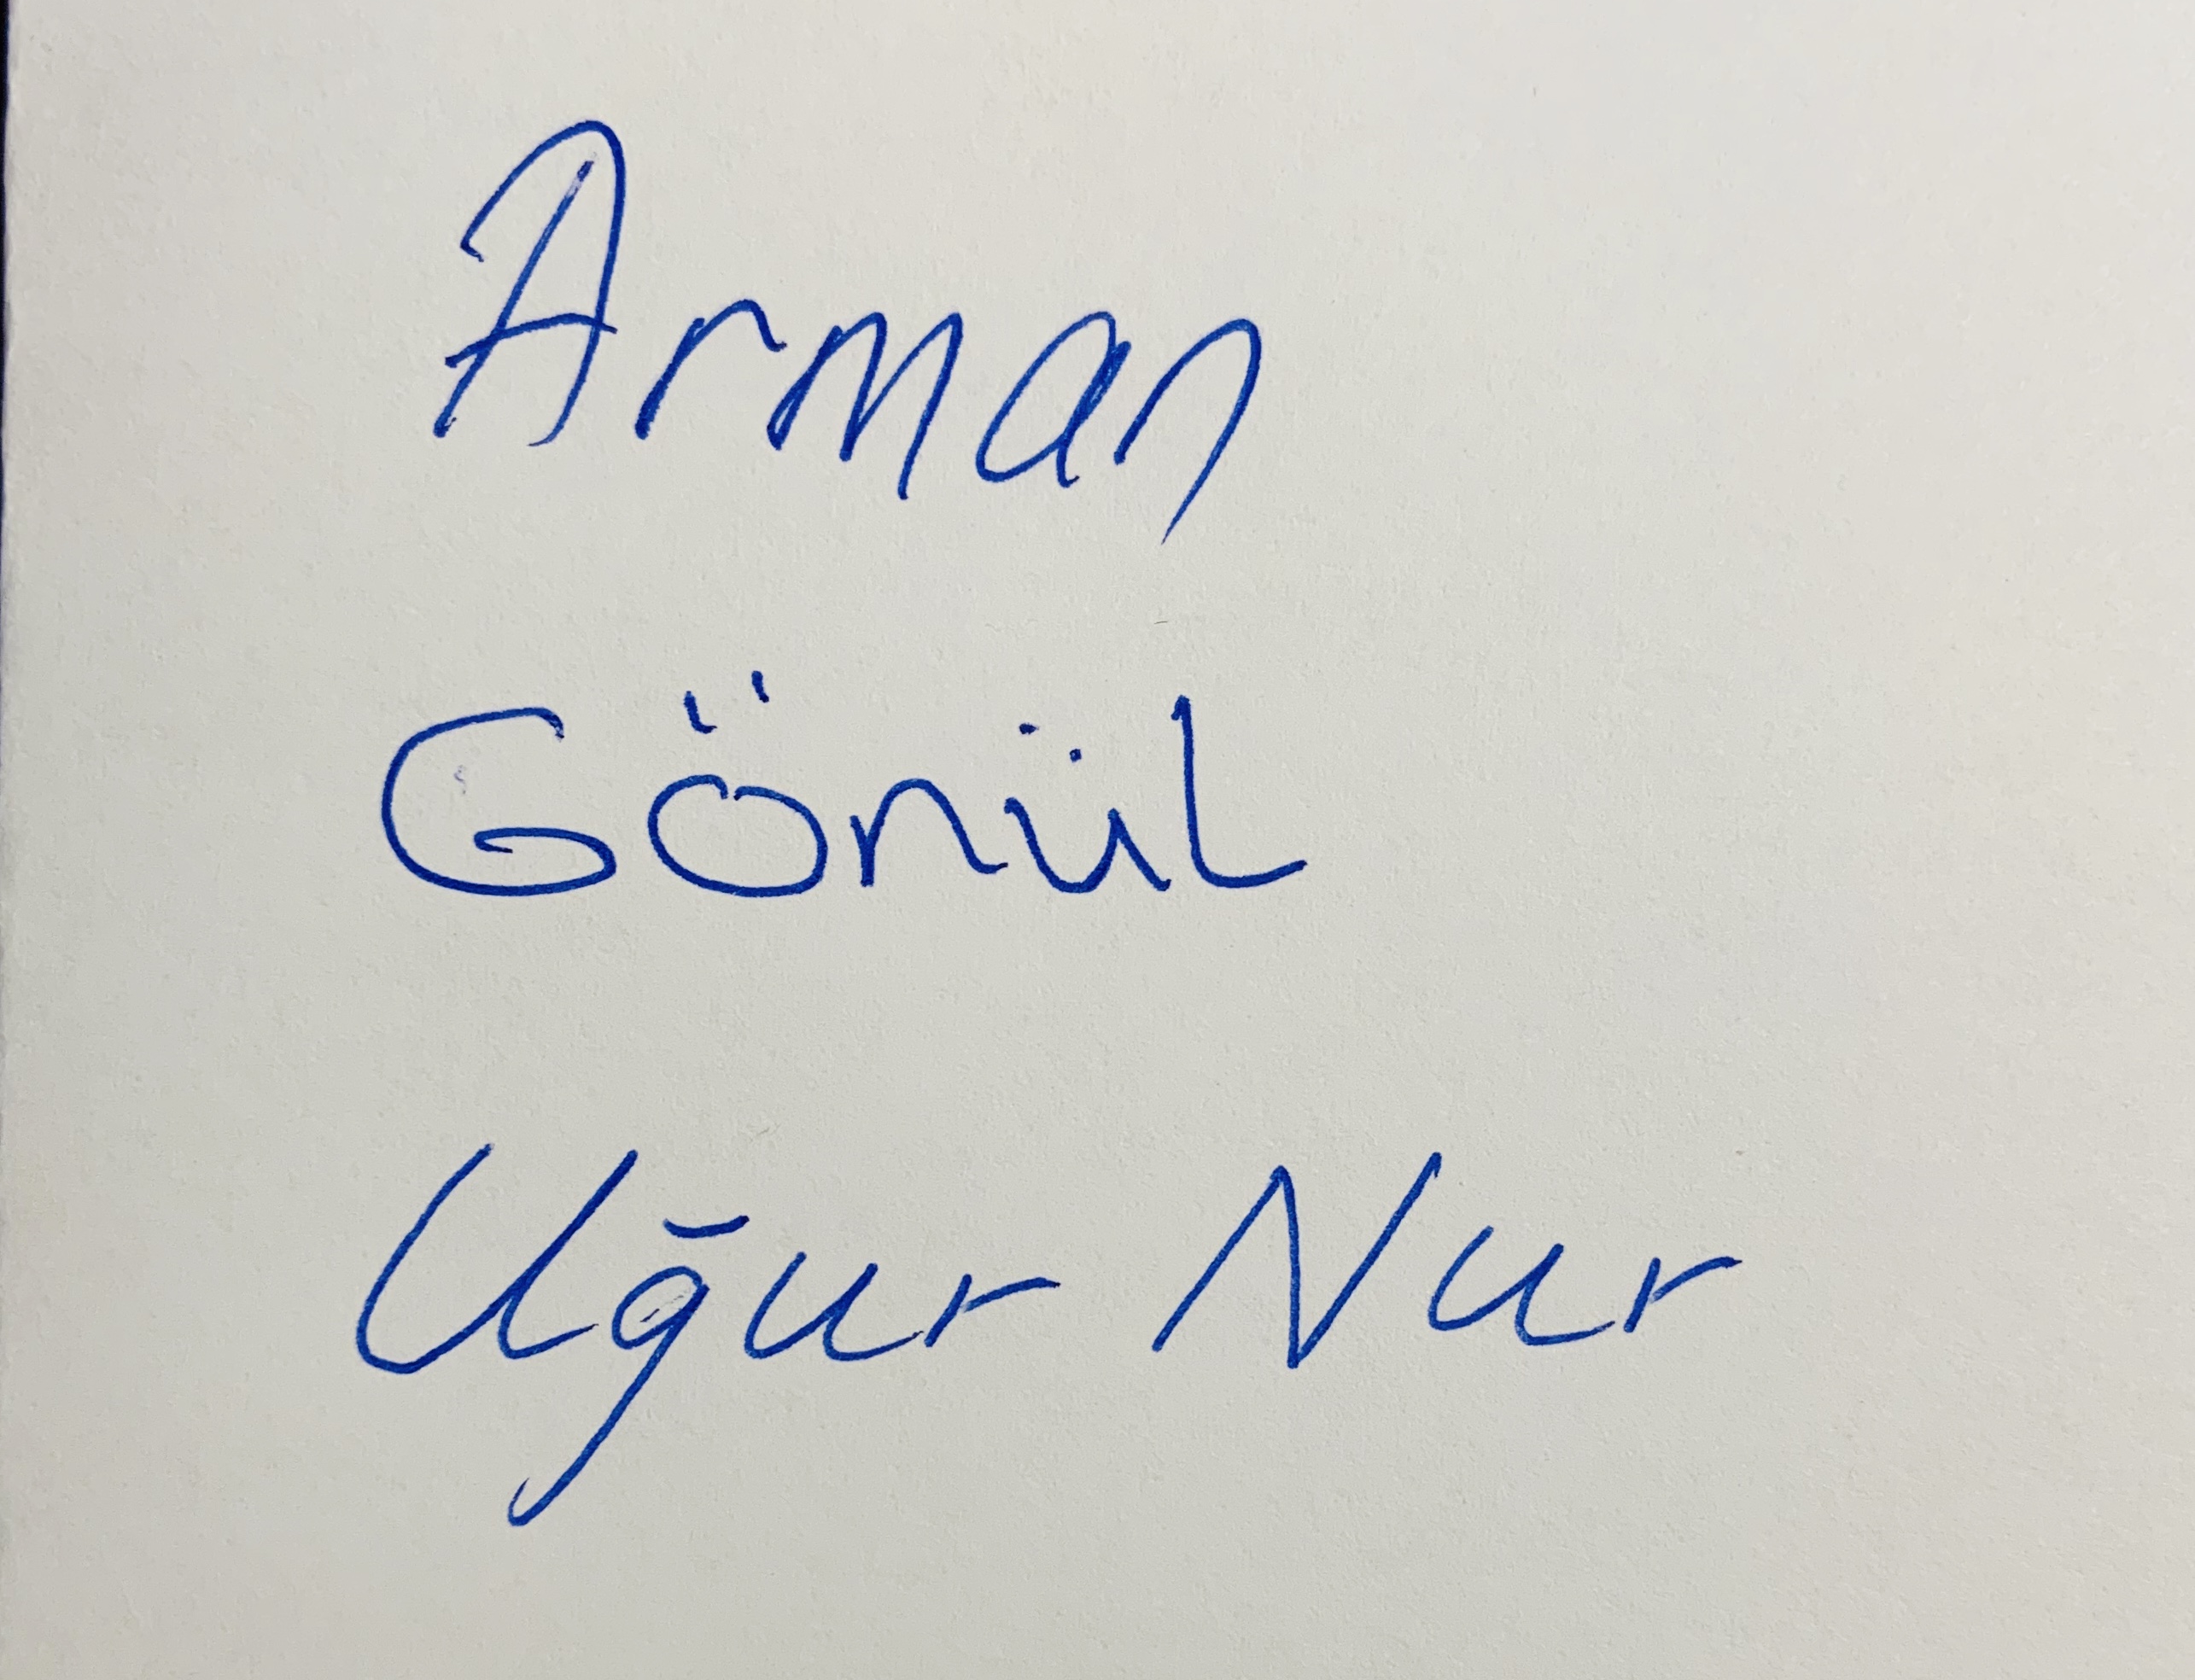 Arman
Gönül
Uğur Nur